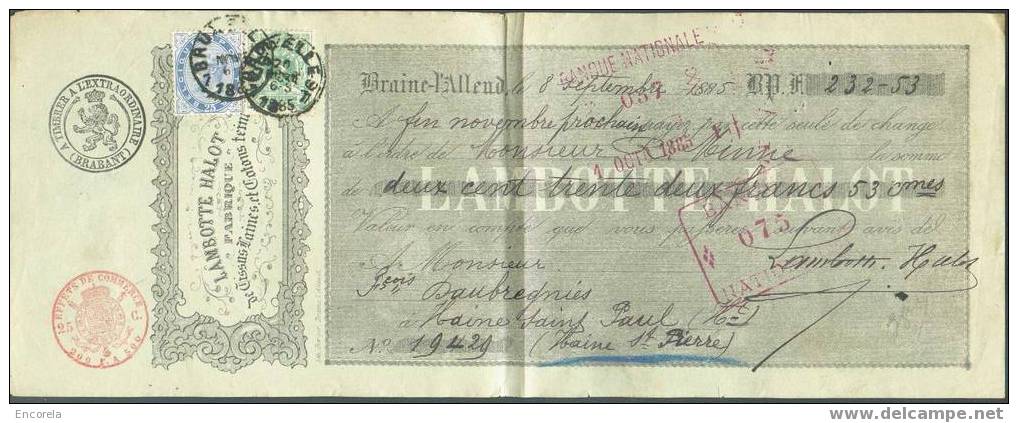 A TIMBRER A L'EXTRAORDINAIRE
(BRABANT)
LAMBOTTE HALOT
FABRIQUE
De Tissus Laines, et Cotons teints
25
1885
BANQUE NATIONALE
037
1 OCTO 1885
075
Braine-l'Alleud, le 8 Septembre 1885 BP. F. 232-53
A fin novembre prochain payez par cette seule de change
à l'ordre de Monsieur Minne la somme
de deux cent trente deux francs 53 cmes
LAMBOTTE HALOT
Valeur en compte que vous passerez suivant avis de
Lambotte Halot
A Monsieur
Fçois Daubregniés
à Haine Saint Paul (Ht)
No 19429 (Haine St Pierre)
EFFETS DE COMMERCE
Encorela
www.delcampe.net